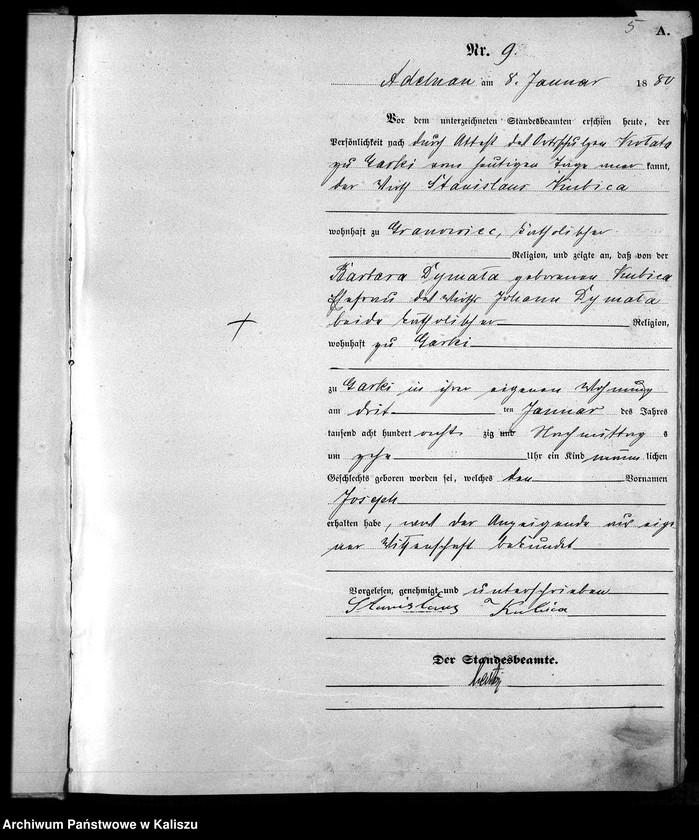 5
A.
Nr. 9.
Adelnau am 8. Januar 1880
Vor dem unterzeichneten Standesbeamten erschien heute, der
Persönlichkeit nach durch Attest des Ortsschulzen
zu Garki vom heutigen Tage aner kannt,
der Wirth Stanislaus Kubica
wohnhaft zu Granowiec, katholischer
Religion, und zeigte an, daß von der
Barbara Dymata geborenen Kubica
Ehefrau des Wirths Johann Dymata
beide katholischer Religion,
wohnhaft zu Garki
zu Garki in ihrer eigenen Wohnung
am drit ten Januar des Jahres
tausend acht hundert acht zig und Nachmittag s
um zehn Uhr ein Kind männ lichen
Geschlechts geboren worden sei, welches den Vornamen
Joseph
erhalten habe, was der Anzeigende aus eige
ner Wissenschaft bekundet
Vorgelesen, genehmigt und unterschrieben
Stanisław Kubica
Der Standesbeamte.
Archiwum Państwowe w Kaliszu